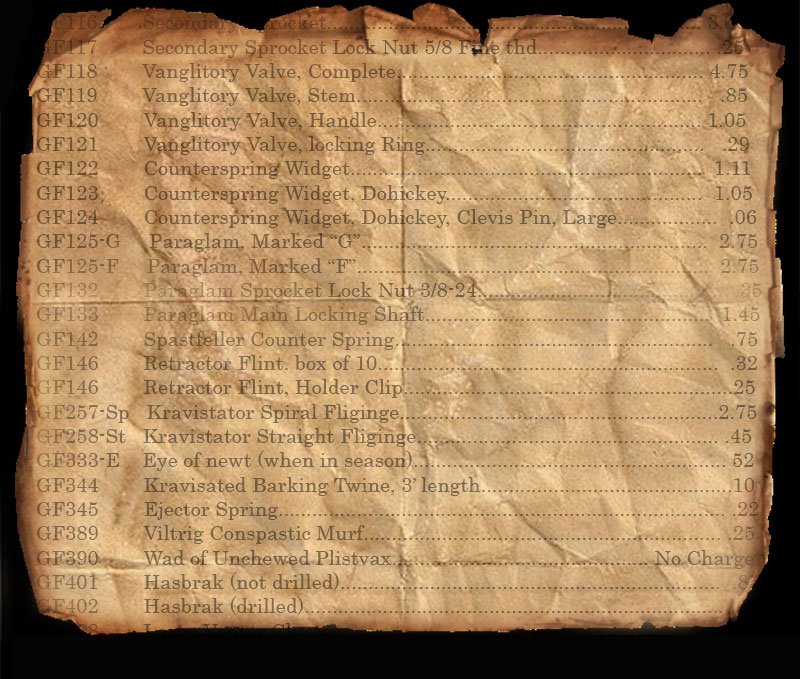 GF116 Secondary Sprocket
GF117 Secondary Sprocket Lock Nut 5/8 Fine thd. .25
GF118 Vanglitory Valve, Complete 4.75
GF119 Vanglitory Valve, Stem .85
GF120 Vanglitory Valve, Handle 1.05
GF121 Vanglitory Valve, locking Ring .29
GF122 Counterspring Widget 1.11
GF123 Counterspring Widget, Dohickey 1.05
GF124 Counterspring Widget, Dohickey, Clevis Pin, Large .06
GF125-G Paraglam, Marked “G” 2.75
GF125-F Paraglam, Marked “F” 2.75
GF132 Paraglam Sprocket Lock Nut 3/8-24 .35
GF133 Paraglam Main Locking Shaft 1.45
GF142 Spastfeller Counter Spring .75
GF146 Retractor Flint. box of 10 .32
GF146 Retractor Flint, Holder Clip .25
GF257-Sp Kravistator Spiral Fliginge 2.75
GF258-St Kravistator Straight Fliginge .45
GF333-E Eye of newt (when in season) .52
GF344 Kravisated Barking Twine, 3’ length .10
GF345 Ejector Spring .22
GF389 Viltrig Conspastic Murf .25
GF390 Wad of Unchewed Plistvax No Charge
GF401 Hasbrak (not drilled)
GF402 Hasbrak (drilled)